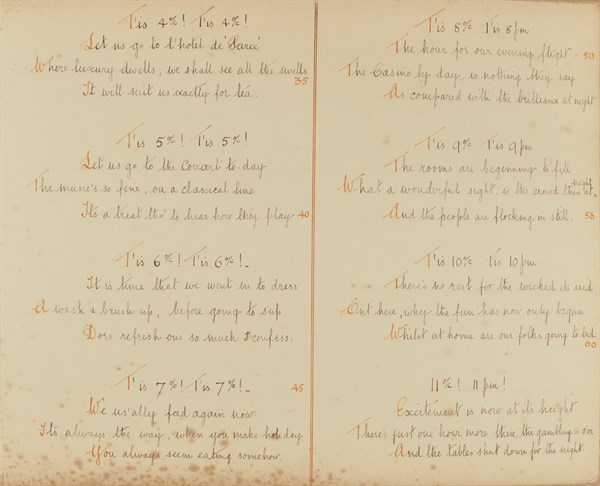 T'is 4%! T'is 4%!
Let us go to l'hotel de 'Paree'
Where luxury dwells, we shall see all the swells
35
It will suit us exactly for tea.
T'is 5%! T'is 5%!
Let us go to the Concert to-day
The music's so fine, on a classical line
It's a treat tho' to hear how they play 40
T'is 6%! T'is 6%!
It is time that we went in to dress
A wash & brush up, before going to sup
Does refresh one so much I confess:
T'is 7%! T'is 7%! 45
We us'ally feed again now
It's always the way, when you make holiday
You always seem eating somehow.
T'is 8% T'is 8 pm
The hour for our evening flight 50
The Casino by day, is nothing they say
As compared with the brilliance at night
T'is 9% T'is 9 pm
The rooms are beginning to fill
What a wonderful sight, is the crowd there at night
And the people are flocking in still: 55
T'is 10% T'is 10 pm
There's no rest for the wicked it's said
Out here, why the fun has now only begun
Whilst at home are our folks going to bed
60
11%! 11 pm!
Excitement is now at its height
There's just one hour more there the gambling is o'er
And the tables shut down for the night.